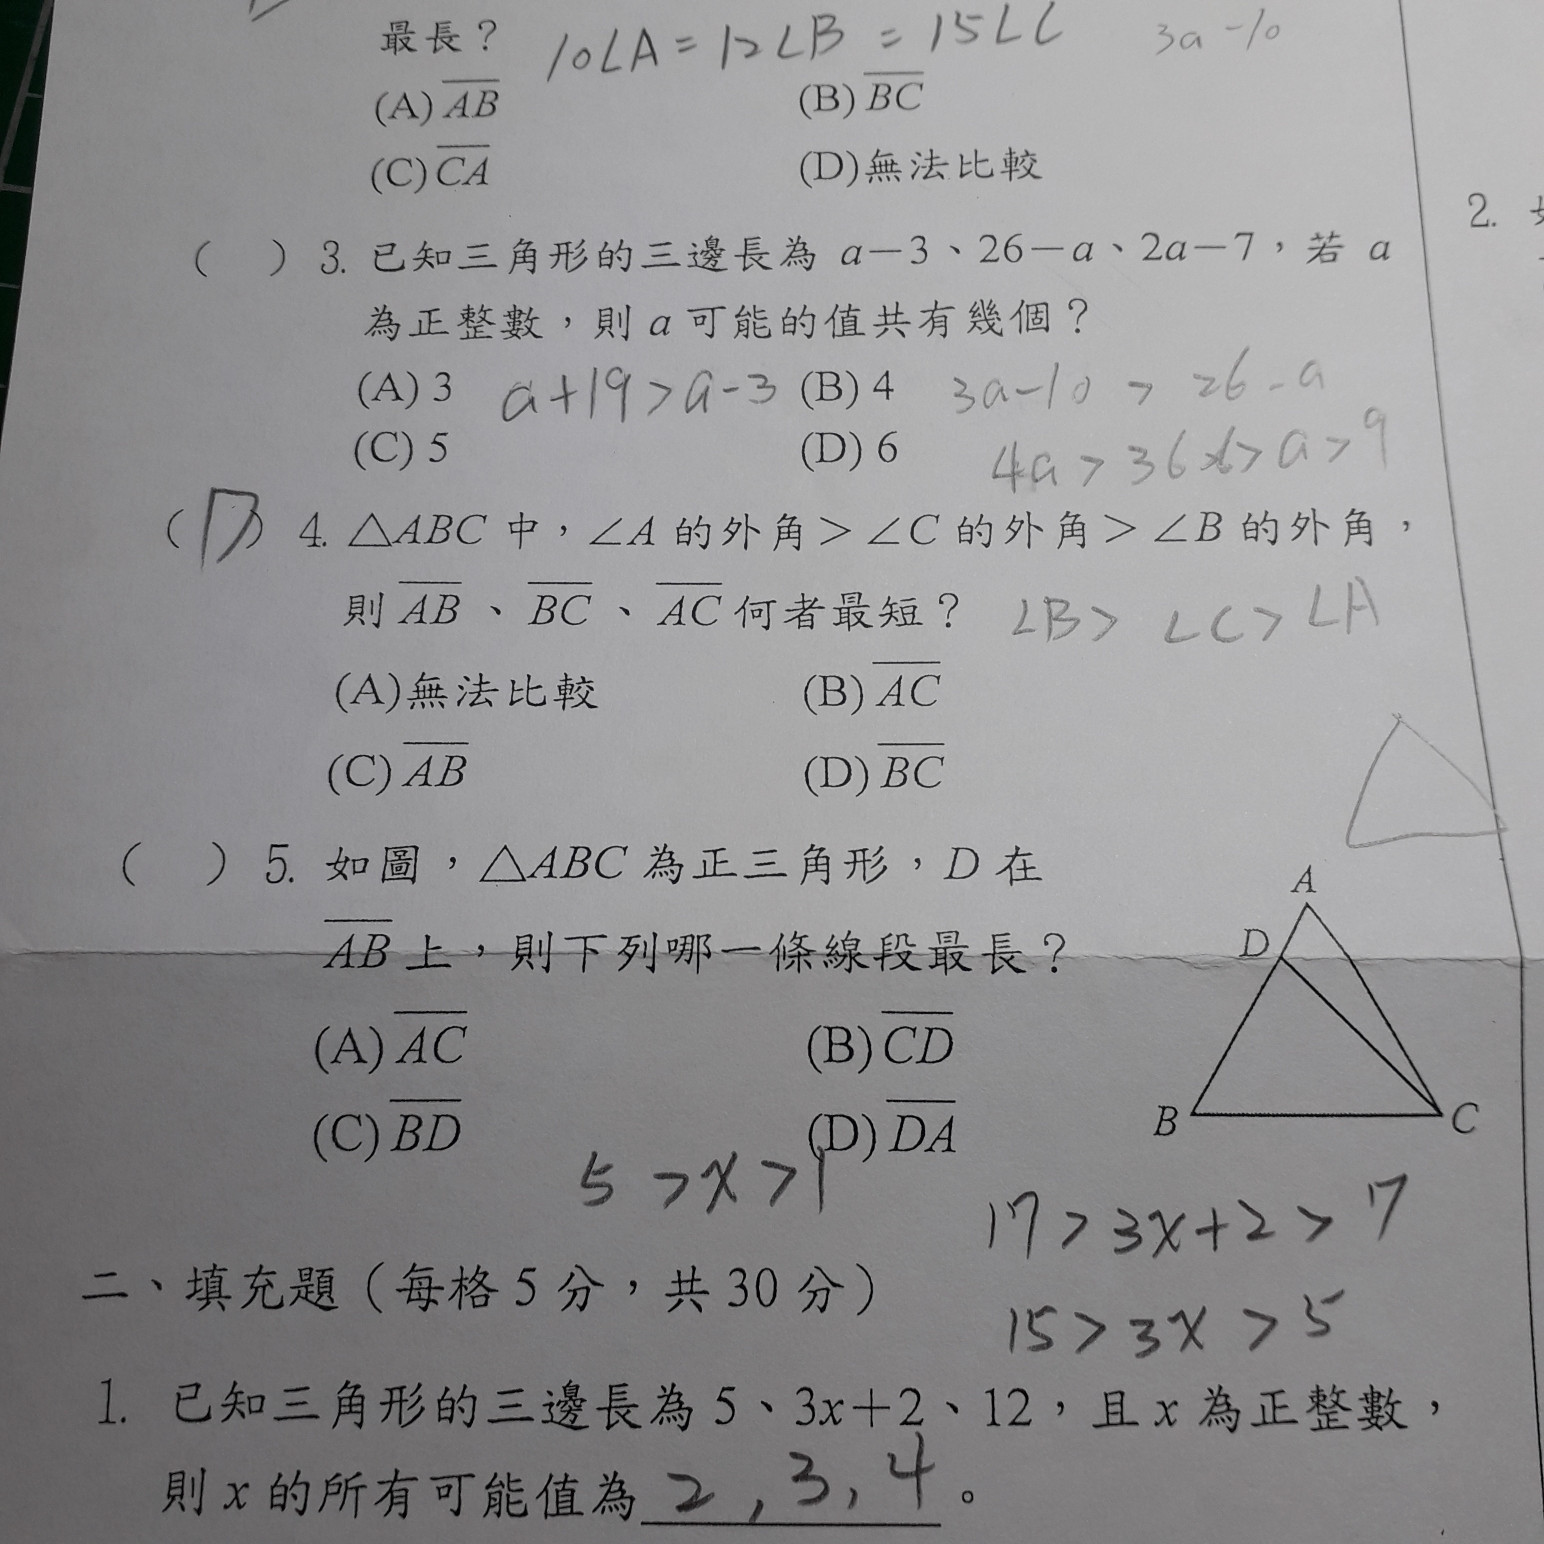 最長？ 10∠A=12∠B=15∠C 3a-10
(A) AB (B) BC
(C) CA (D)無法比較
2.
( ) 3. 已知三角形的三邊長為 a－3、26－a、2a－7，若 a
為正整數，則 a 可能的值共有幾個？
(A) 3 a+19>a-3 (B) 4 3a-10 > 26-a
(C) 5 (D) 6 4a>36 a>9
(D) 4. △ABC 中，∠A 的外角＞∠C 的外角＞∠B 的外角，
則 AB、BC、AC 何者最短？ ∠B> ∠C> ∠A
(A)無法比較 (B) AC
(C) AB (D) BC
( ) 5. 如圖，△ABC 為正三角形，D 在
AB 上，則下列哪一條線段最長？
(A) AC (B) CD
(C) BD (D) DA
A
D
B C
5 >x>1
17>3x+2>7
二、填充題（每格 5 分，共 30 分）
15>3x>5
1. 已知三角形的三邊長為 5、3x＋2、12，且 x 為正整數，
則 x 的所有可能值為 2,3,4 。